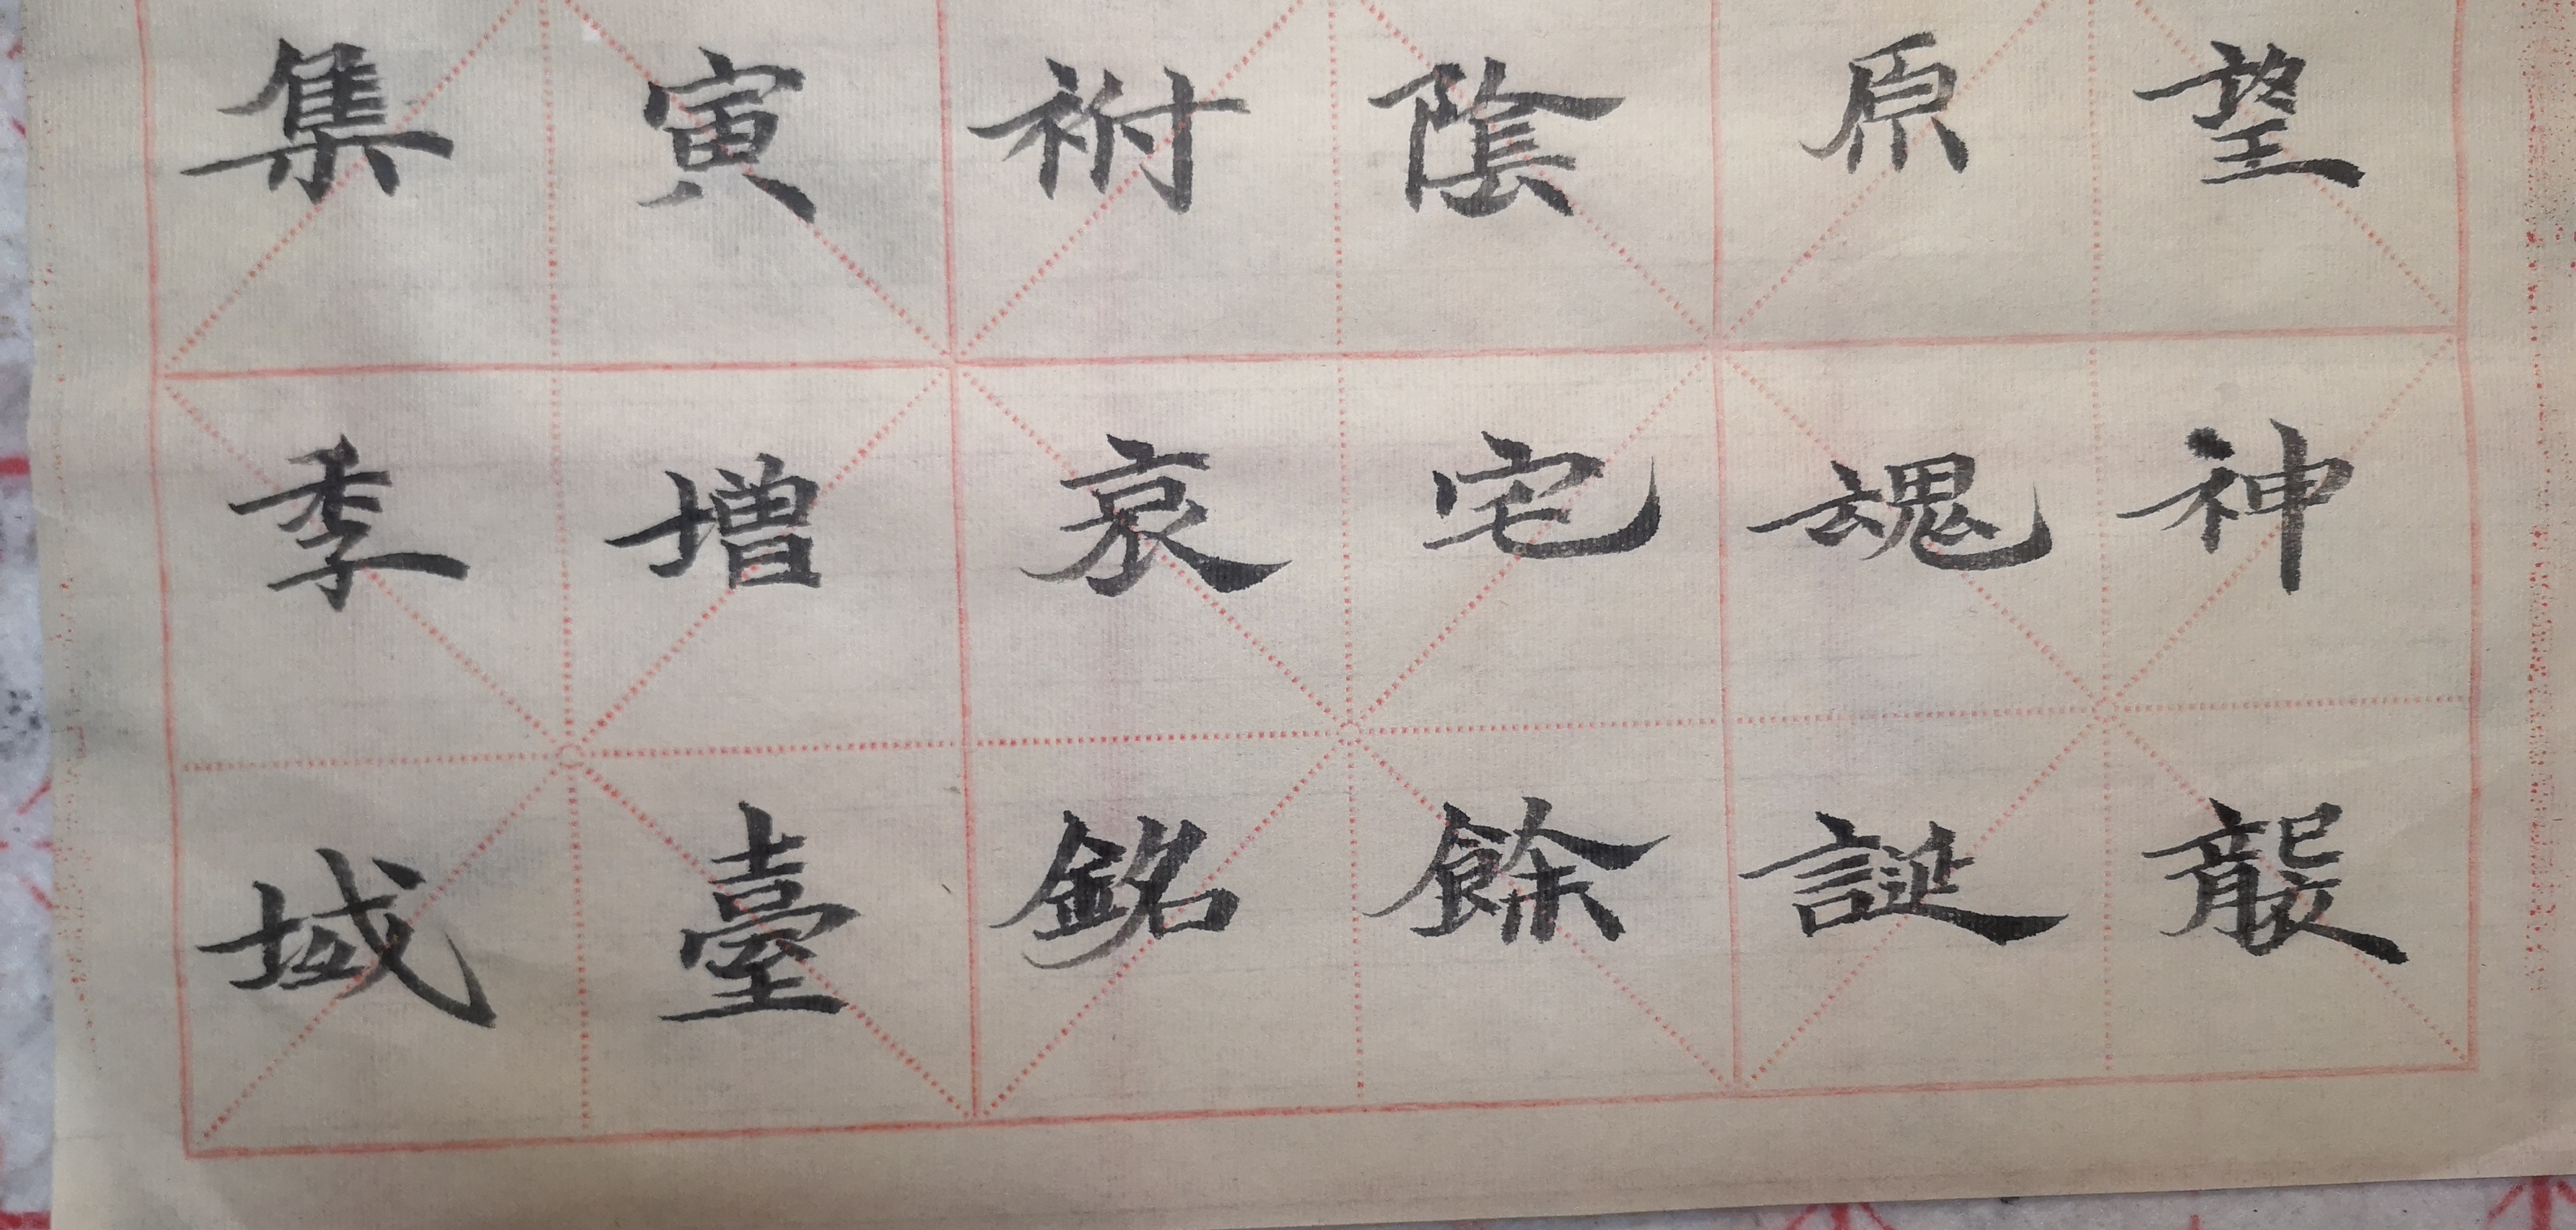 望神襲
原魂誕
陰宅餘
祔哀銘
寅增臺
集季域